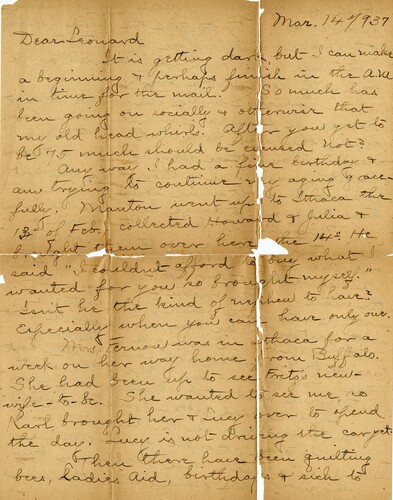 Mar. 14th/937
Dear Leonard
It is getting dark but I can make
a beginning & perhaps finish in the A.M.
in time for the mail. So much has
been going on socially & otherwise that
my old head whirls. After you get to
be 75 much should be excused not?
Any way I had a fine birthday &
am trying to continue my aging grace-
fully. Manton went up to Ithaca the
13th of Feb., collected Howard & Julia &
brought them over here the 14th. He
said "I couldn't afford to buy what I
wanted for you so brought myself."
Isn't he the kind of nephew to have?
Especially when you can have only one.
Mrs. Fernow was in Ithaca for a
week on her way home from Buffalo.
She had been up to see Fritz's new-
wife-to-be. She wanted to see me, so
Karl brought her & Lucy over to spend
the day. Lucy is not driving the car yet.
Then there have been quilting
bees, Ladies Aid, birthdays & sick to